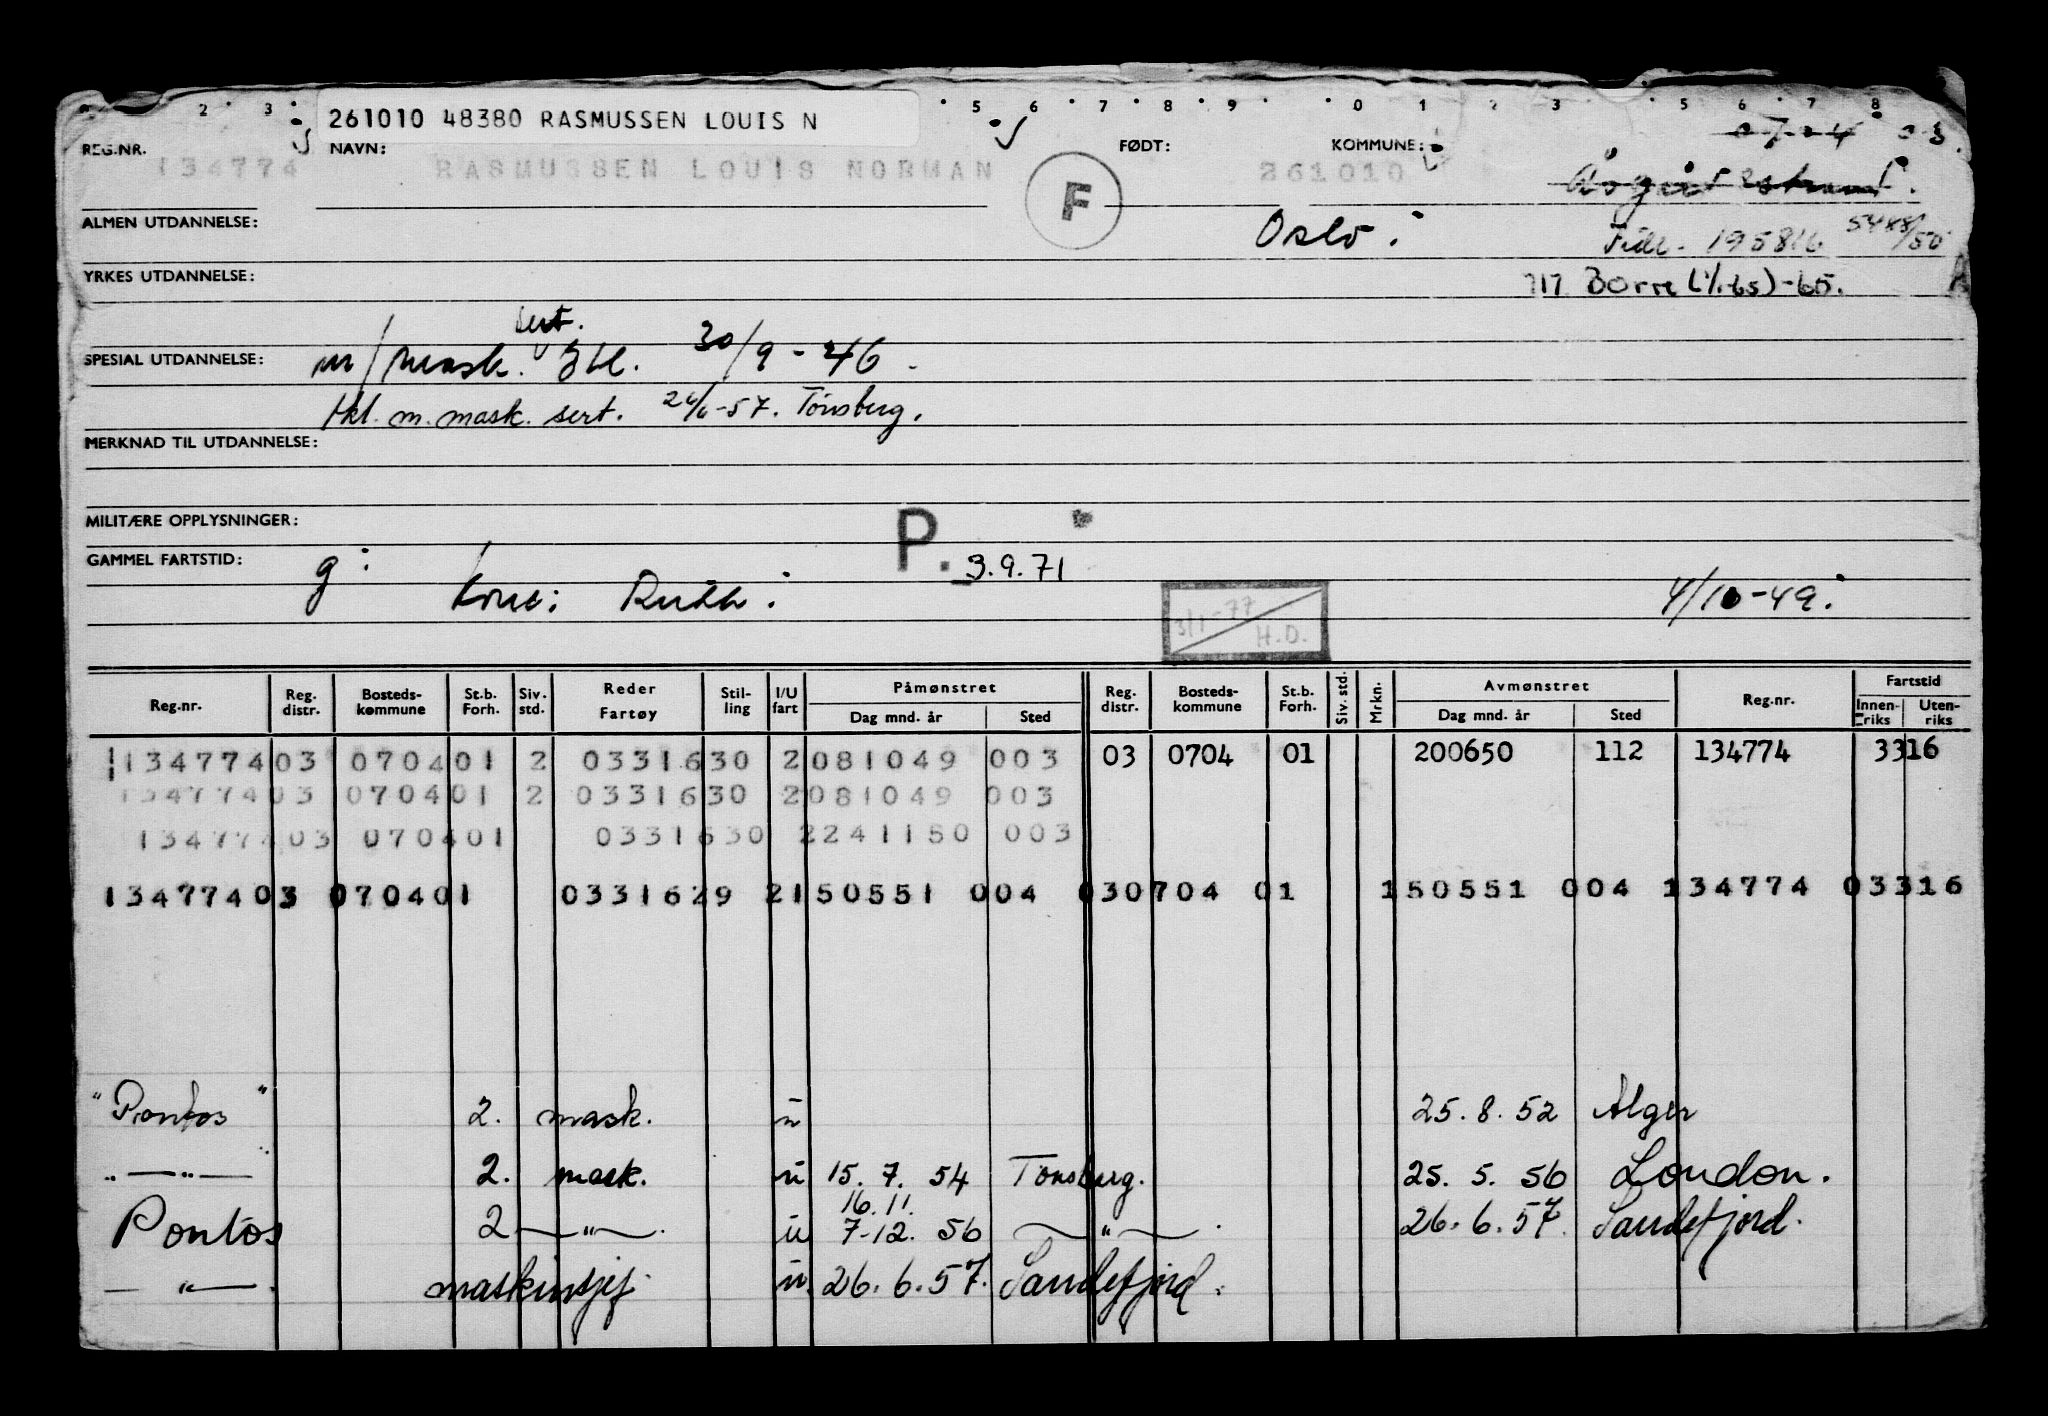 2 3 5 6 7 8 9 0 1 2 3 5 6 7 8
261010 48380 RASMUSSEN LOUIS N
0704 03
REG.NR. NAVN: FØDT: KOMMUNE:
134774 RASMUSSEN LOUIS NORMAN 261010 Åsgårdstrand.
F
ALMEN UTDANNELSE: Oslo. 195816 5488/50
YRKES UTDANNELSE: 717 Borre (1/1-65)-65. A
sert.
SPESIAL UTDANNELSE: m/mask. 3 kl. 30/9-46.
1kl. m. mask. sert. -57. Tönsberg.
MERKNAD TIL UTDANNELSE:
MILITÆRE OPPLYSNINGER: P.
GAMMEL FARTSTID: g: 3.9.71
kone: Ruth. 4/10-49.
3/1-77 H.O.
Reg.nr. Reg. distr. Bosteds-kommune St.b. Forh. Siv. std. Reder Fartøy Stil-ling I/U fart Påmønstret Dag mnd. år Sted Reg. distr. Bosteds-kommune St.b. Forh. Siv. std. Mrkn. Avmønstret Dag mnd. år Sted Reg.nr. Fartstid Innen-riks Uten-riks
134774 03 0704 01 2 03316 30 2 081049 003 03 0704 01 200650 112 134774 3316
134774 03 0704 01 2 03316 30 2 081049 003
134774 03 0704 01 03316 30 2 241150 003
134774 03 0704 01 03316 29 2 150551 004 03 0704 01 150551 004 134774 03316
"Pontos" 2. mask. u 25. 8. 52 Alger
" 2. mask. u 15. 7. 54 Tønsberg. 25. 5. 56 London.
16.11.
Pontos 2 " u 7-12. 56 " 26. 6. 57. Sandefjord.
" maskinsjef. u. 26. 6. 57. Sandefjord.